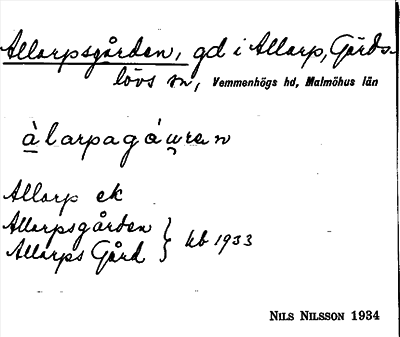 Allarpsgården, gd i Allarp, Gärds-
lövs sn, Vemmenhögs hd, Malmöhus län
àlarpagáu̯ran
Allarp ek
Allarpsgården
Allarps Gård } kb 1933
NILS NILSSON 1934